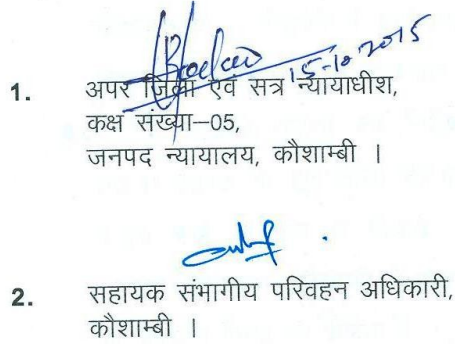 15-10-2015
1. अपर जिला एवं सत्र न्यायाधीश,
कक्ष संख्या–05,
जनपद न्यायालय, कौशाम्बी ।
2. सहायक संभागीय परिवहन अधिकारी,
कौशाम्बी ।